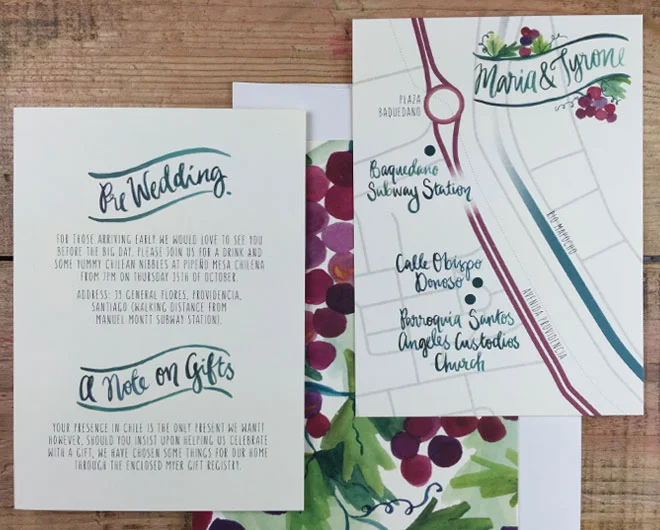 Pre Wedding
FOR THOSE ARRIVING EARLY WE WOULD LOVE TO SEE YOU
BEFORE THE BIG DAY. PLEASE JOIN US FOR A DRINK AND
SOME YUMMY CHILEAN NIBBLES AT PIPEÑO MESA CHILENA
FROM 7PM ON THURSDAY OF OCTOBER.
ADDRESS: GENERAL FLORES, PROVIDENCIA,
SANTIAGO (WALKING DISTANCE FROM
MANUEL MONTT SUBWAY STATION).
A Note on Gifts
YOUR PRESENCE IN CHILE IS THE ONLY PRESENT WE WANT!
HOWEVER, SHOULD YOU INSIST UPON HELPING US CELEBRATE
WITH A GIFT, WE HAVE CHOSEN SOME THINGS FOR OUR HOME
THROUGH THE ENCLOSED MYER GIFT REGISTRY.
Maria & Tyrone
PLAZA
BAQUEDANO
Baquedano
Subway Station
RIO MAPOCHO
Calle Obispo
Donoso
AVENIDA PROVIDENCIA
Parroquia Santos
Angeles Custodios
Church